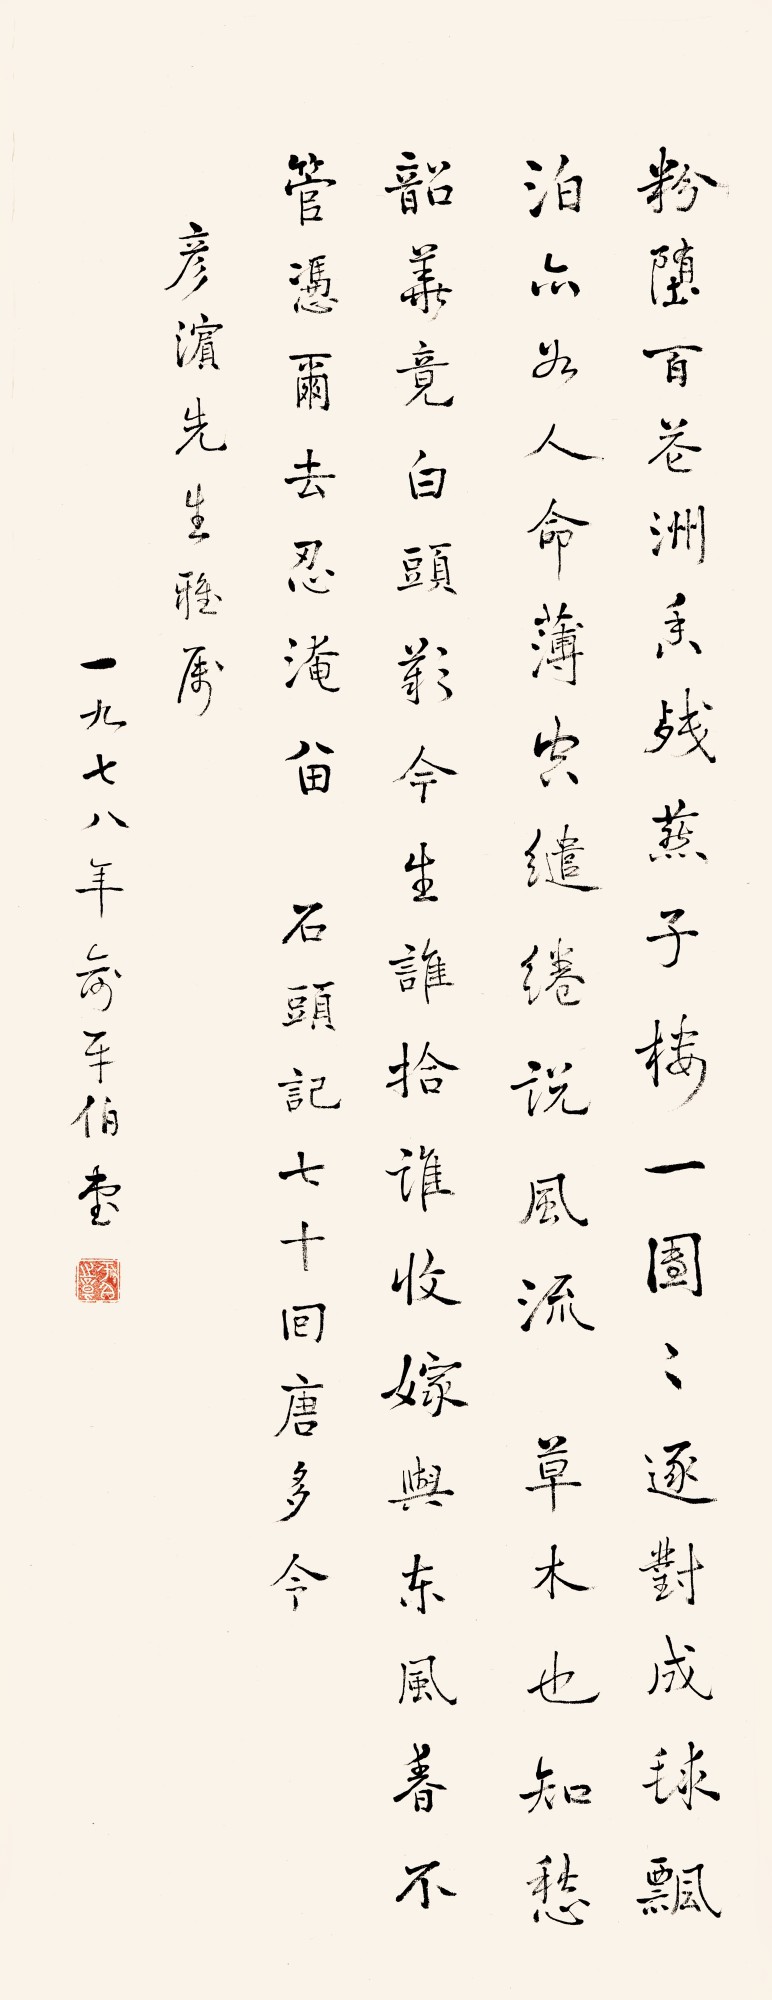 粉堕百花洲香残燕子楼一團々逐對成毬飄
泊亦如人命薄空繾綣説風流　草木也知愁
韶華竟白頭嘆今生誰拾誰收嫁與东風春不
管憑爾去忍淹留　石頭記七十回唐多令
彦濱先生雅属
一九七八年俞平伯書